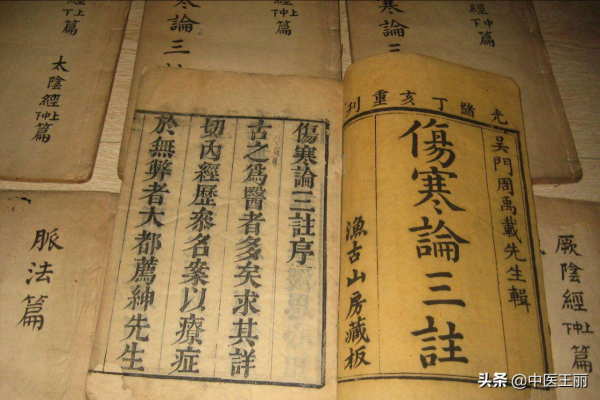 寒論三註
寒論三
光緒丁亥重刊
吳門周禹載先生輯
傷寒論三註
漁古山房藏板
傷寒論三註序
古之爲醫者多矣求其詳
切內經歷叅名案以療症
於無弊者大都薦紳先生
太陰經篇
脈法篇
厥陰經篇
头条 @中医王丽